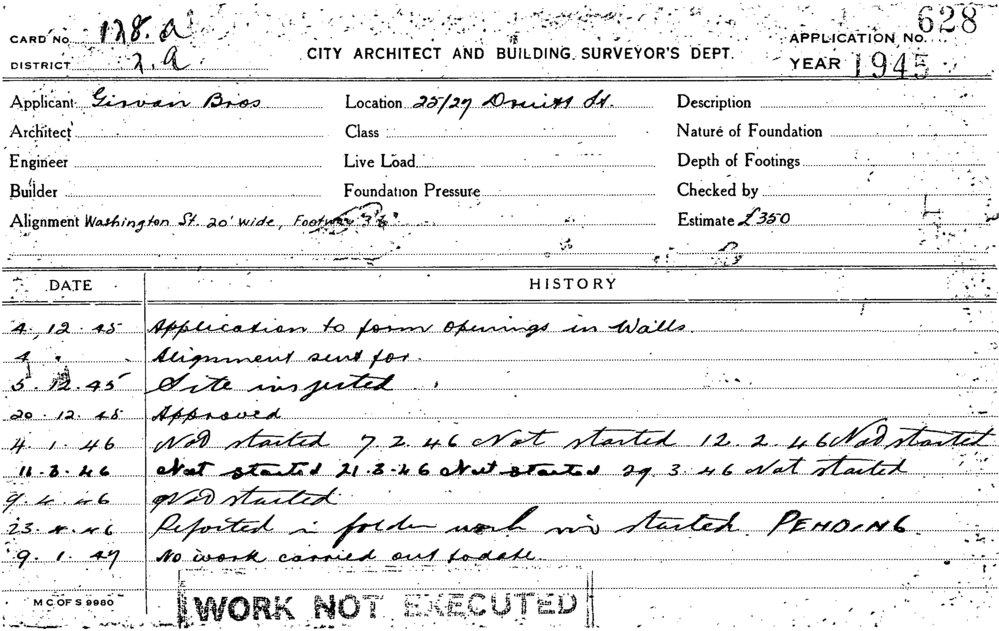 CARD NO 128.A
DISTRICT 2.A
CITY ARCHITECT AND BUILDING SURVEYOR'S DEPT.
APPLICATION NO. 628
YEAR 1945
Applicant Girvan Bros Location 25/27 Druitt St. Description
Architect Class Nature of Foundation
Engineer Live Load Depth of Footings
Builder Foundation Pressure Checked by
Alignment Washington St. 20' wide, Footway Estimate £350
DATE HISTORY
4. 12. 45 Application to form openings in Walls.
4 Alignment sent for.
5. 12. 45 Site inspected
20. 12. 45 Approved
4. 1. 46 Not started 7. 2. 46 Not started 12. 2. 46 Not started
11. 3. 46 Not started 21. 3. 46 Not started 29. 3. 46 Not started
9. 4. 46 Not started
23. 4. 46 Reported in folder work started. PENDING
9. 1. 47 No work carried out to date
M C OF S 9980
WORK NOT EXECUTED